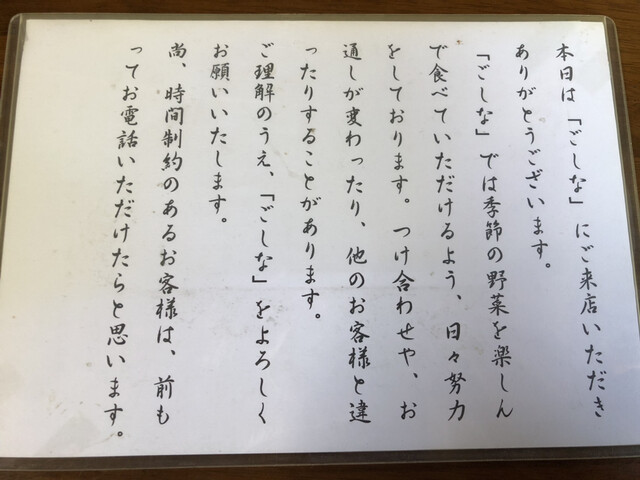 本日は「ごしな」にご来店いただき
ありがとうございます。
「ごしな」では季節の野菜を楽しん
で食べていただけるよう、日々努力
をしております。つけ合わせや、お
通しが変わったり、他のお客様と違
ったりすることがあります。
ご理解のうえ、「ごしな」をよろしく
お願いいたします。
尚、時間制約のあるお客様は、前も
ってお電話いただけたらと思います。